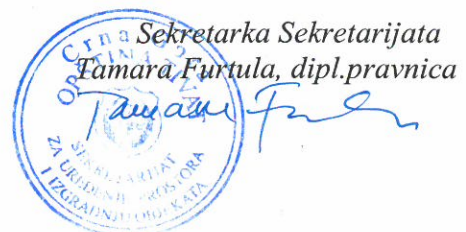 Sekretarka Sekretarijata
Tamara Furtula, dipl.pravnica
Crna Gora
OPŠTINA TIVAT
SEKRETARIJAT
ZA UREĐENJE PROSTORA
I IZGRADNJU OBJEKATA